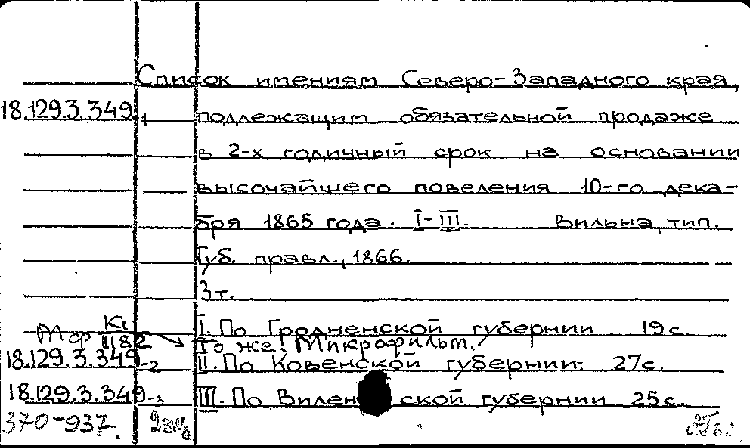 Список имениям Северо-Западного края,
18.129.3.349 1 подлежащим обязательной продаже
в 2-х годичный срок на основании
высочайшего повеления 10-го дека-
бря 1865 года. I-III. Вильна, тип.
Губ. правл., 1866.
3 т.
I. По Гродненской губернии 19 с.
То же. Микрофильм.
18.129.3.349-2 II. По Ковенской губернии. 27 с.
18.129.3.349-3 III. По Виленской губернии 25 с.
370-937.